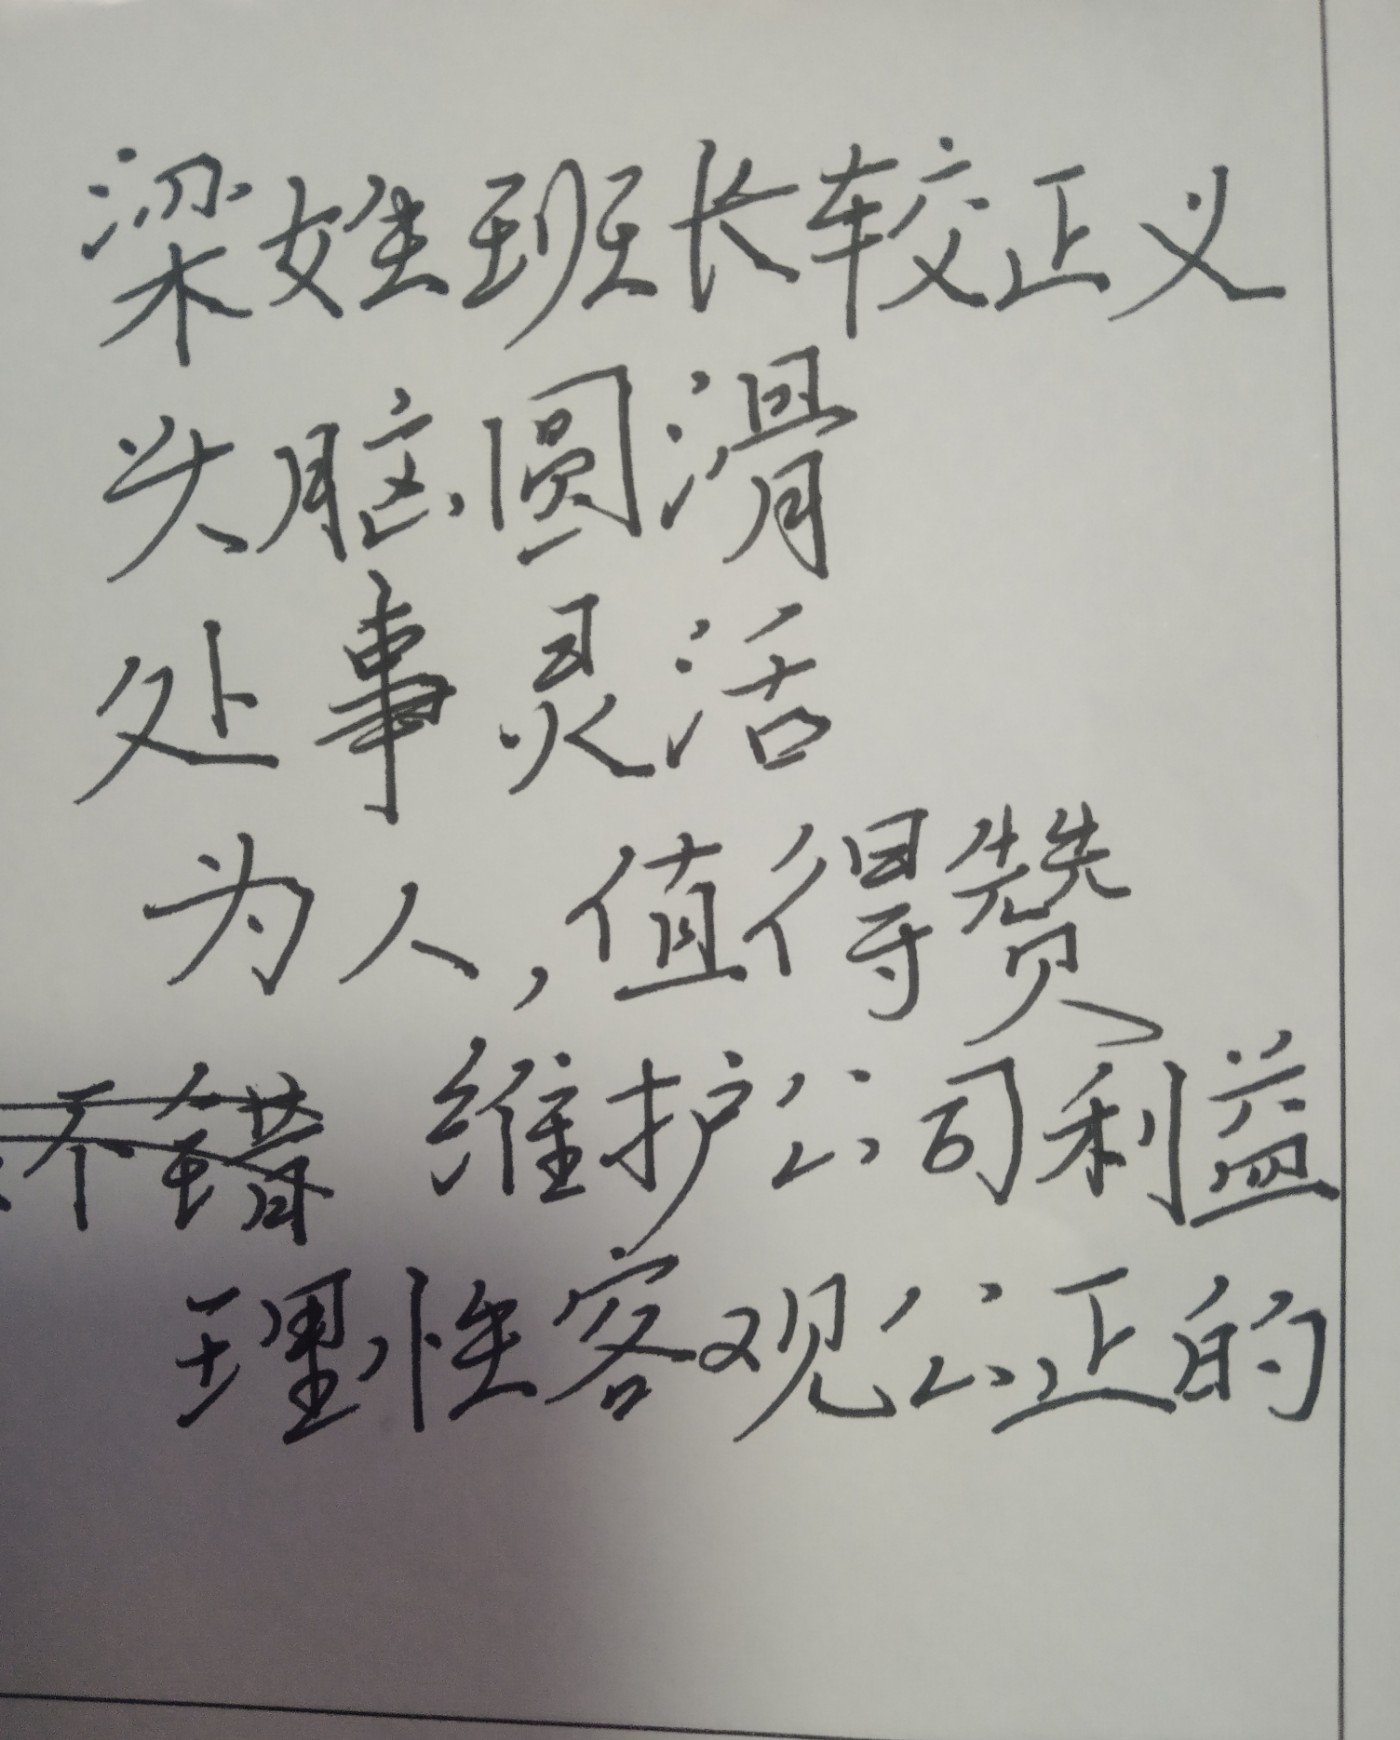 梁姓班长较正义
头脑圆滑
处事灵活
为人,值得赞
不错 维护公司利益
理性客观公正的